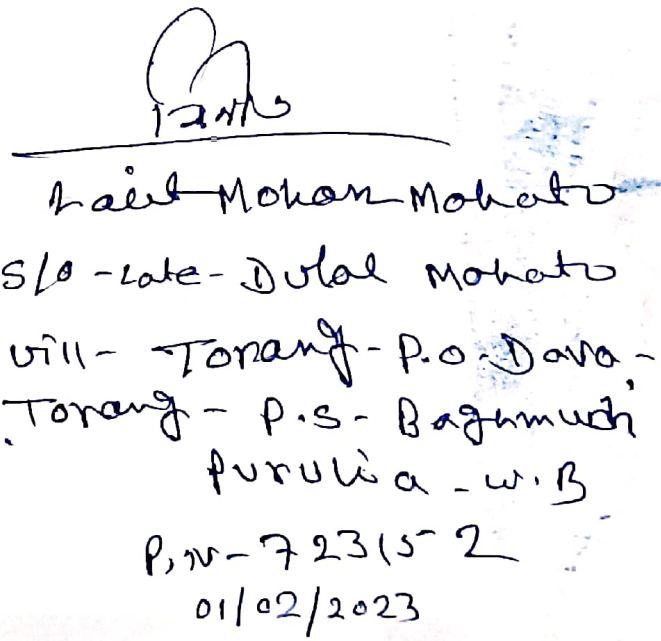 Lalit Mohan Mohato
S/o - Late - Dulal Mohato
Vill - Torang - P.O - Dava -
Torang - P.S - Baghmundi
Purulia - W.B
Pin - 723152
01/02/2023